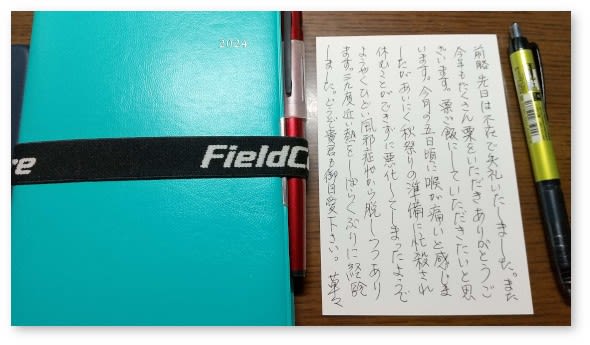 2024
FieldCo
re
前略 先日は不在で失礼いたしました。また
今年もたくさん栗をいただきありがとうご
ざいます。栗ご飯にしていただきたいと思
います。今月の五日頃に喉が痛いと感じま
したがあいにく秋祭りの準備に忙殺され
休むことができずに悪化してしまったようで
ようやくひどい風邪症状から脱しつつあり
ます。三九度近い熱をしばらくぶりに経験
しました。どうぞ貴君も御自愛下さい。 草々